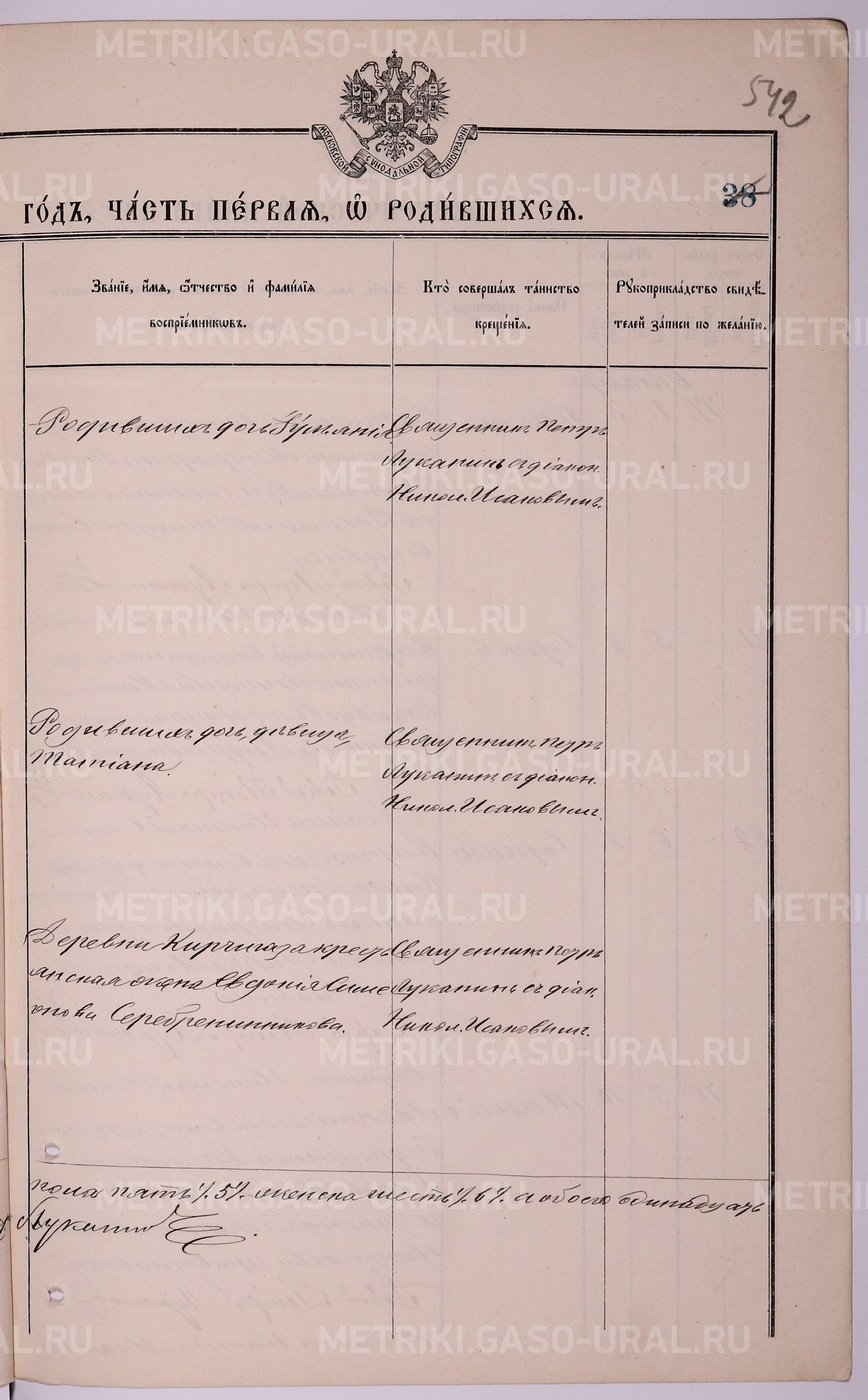 542
МОСКОВСКОЙ СѴНОДАЛЬНОЙ ТИПОГРАФІИ
38
ГО́ДЪ, ЧА́СТЬ ПЕ́РВАЯ, Ѽ РОДИ́ВШИХСЯ.
Зва́нїе, и҆́мя, ѻ҆́тчество и҆ фами́лїя
воспрїе́мникѡвъ.
Кто̀ соверша́лъ та́инство
креще́нїя.
Рꙋкоприкла́дство свидѣ́-
телей за́писи по жела́нїю.
Родившихъ дочь
Священникъ Петръ
Луканинъ съ діакон.
Никол. Исаковымъ.
Родившихъ дочь, дѣвица,
Татіана.
Священникъ Петръ
Луканинъ съ діакон.
Никол. Исаковымъ.
Деревни Киргишаза крест
янская жена Евдокія Симе
онова Серебренникова.
Священникъ Петръ
Луканинъ съ діак.
Никол. Исаковымъ.
пола пять /.5/. женска шесть /.6/. а обоего одинадцать
Луканинъ
METRIKI.GASO-URAL.RU